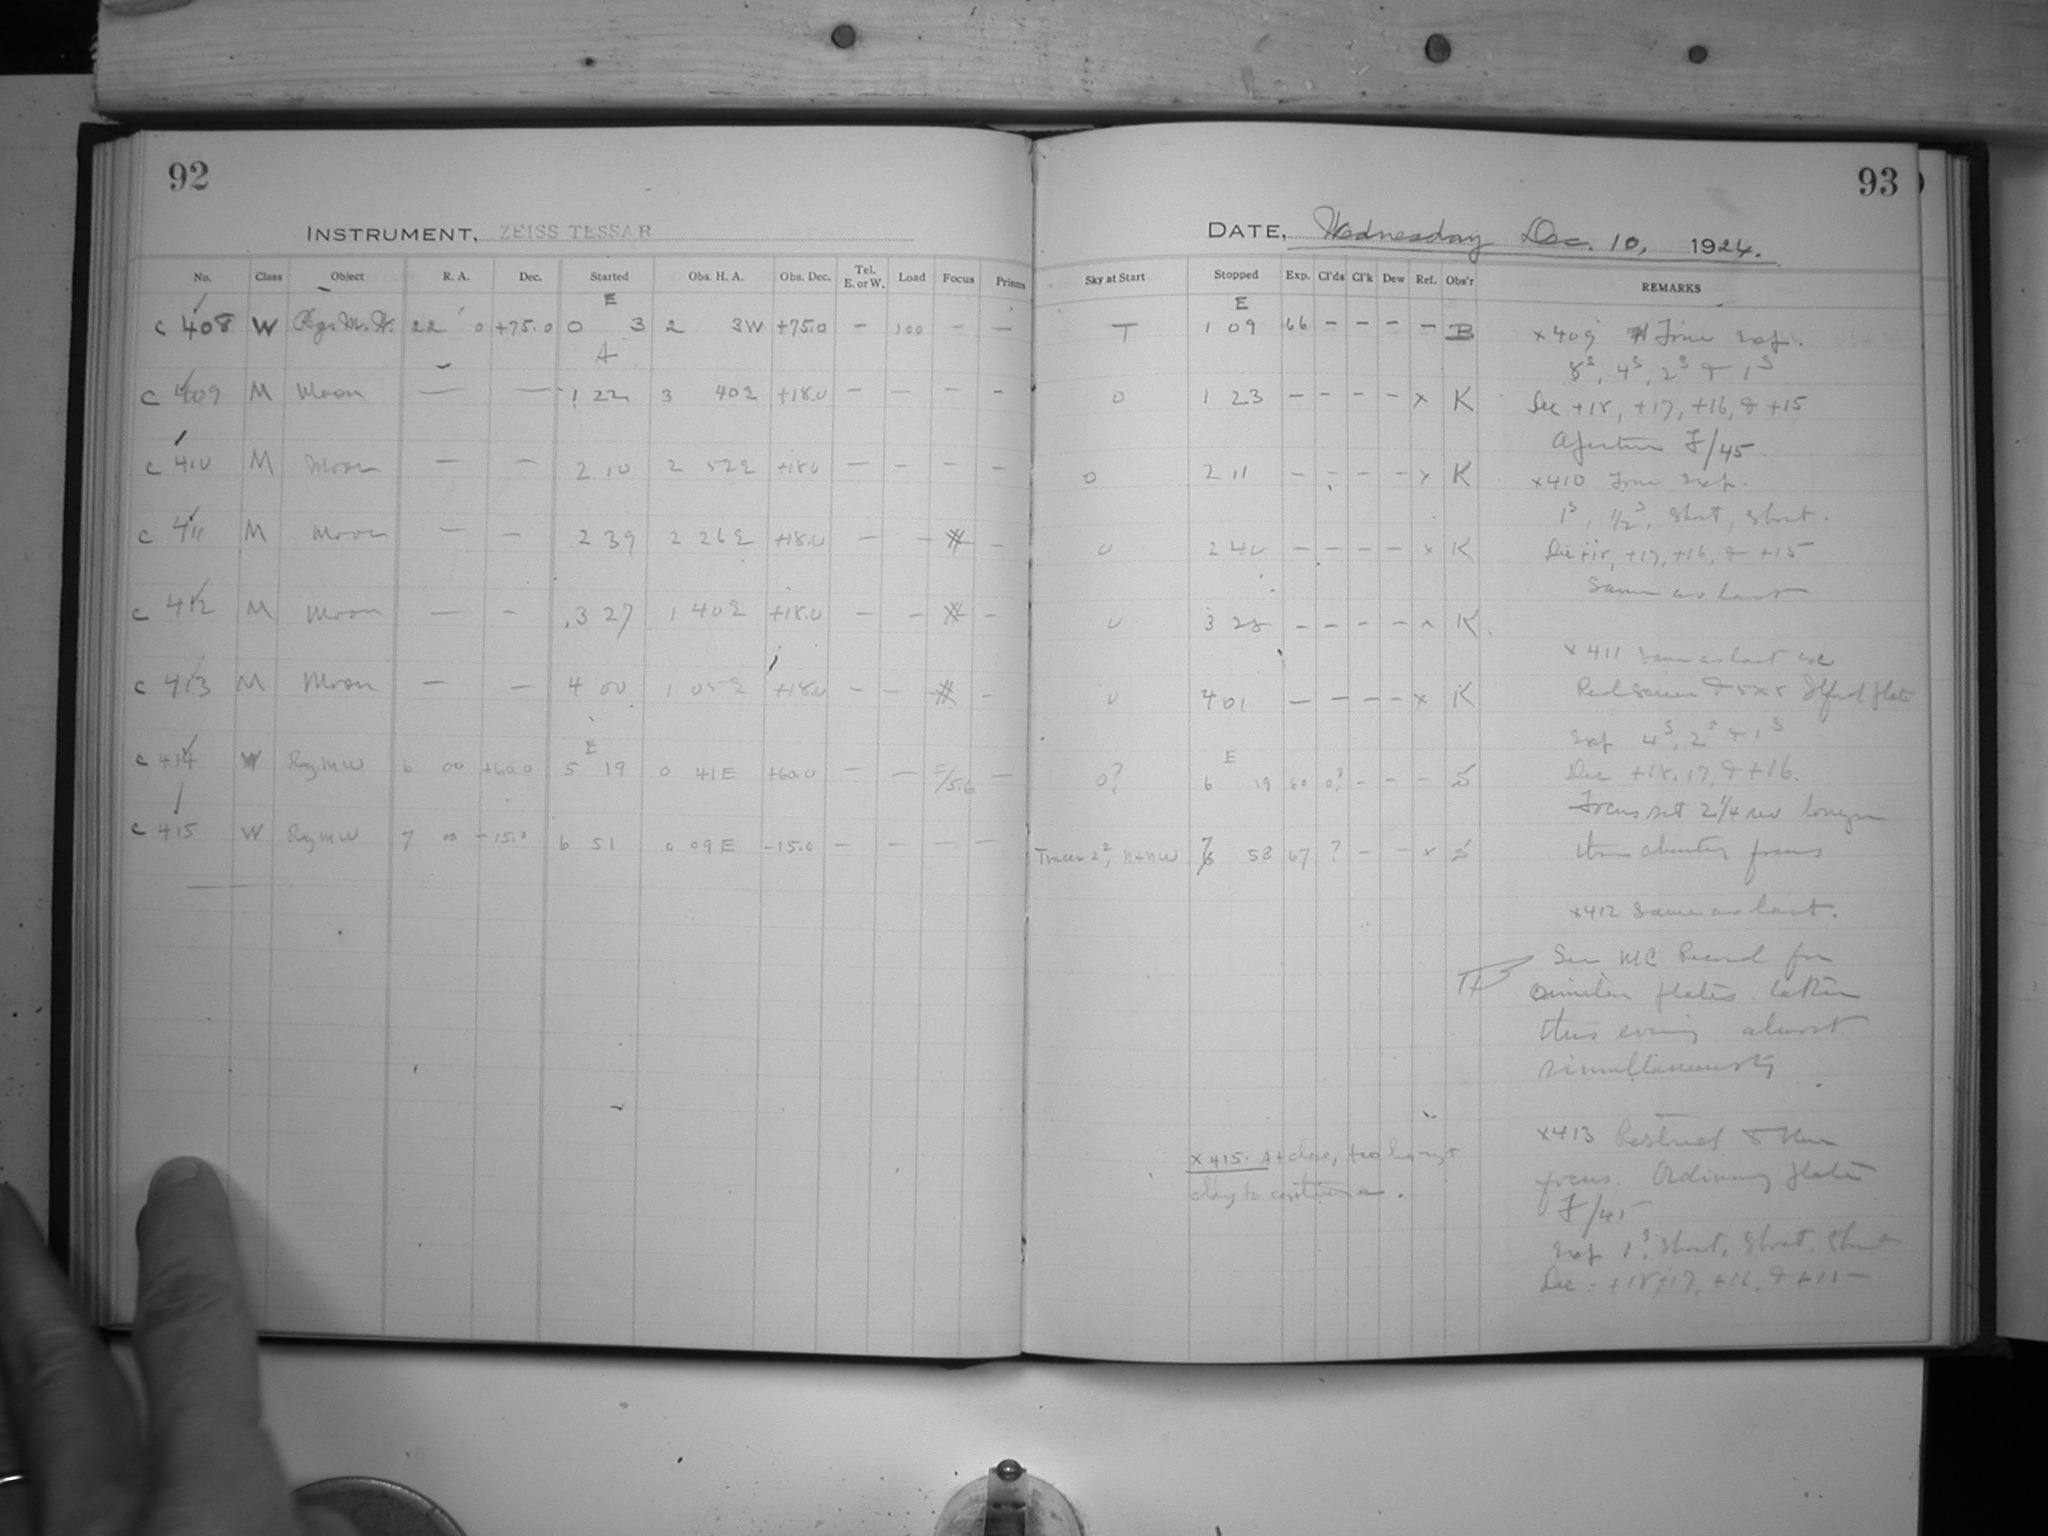 92
INSTRUMENT, ZEISS TESSAR
No. Class Object R. A. Dec. Started Obs. H. A. Obs. Dec. Tel. E. or W. Load Focus Prisms
E
c 408 W Rg. M.W. 22 0 +75.0 0 3 2 3W +75.0 — 100 — —
A
c 409 M Moon — — 1 22 3 40E +18.0 — — — —
c 410 M Moon — — 2 10 2 52E +18.0 — — — —
c 411 M Moon — — 2 39 2 26E +18.0 — — —
c 412 M Moon — — 3 27 1 40E +18.0 — — —
c 413 M Moon — — 4 00 1 05E +18.0 — — —
E
c 414 W Rg MW 6 00 +60.0 5 19 0 41E +60.0 — — F/5.6 —
c 415 W Rg MW 7 00 -15.0 6 51 0 09E -15.0 — — — —
93
DATE, Wednesday Dec. 10, 1924.
Sky at Start Stopped Exp. Cl'ds Cl'k Dew Ref. Obs'r REMARKS
E
T 1 09 66 — — — — B
0 1 23 — — — — x K
0 2 11 — — — — x K
0 2 40 — — — — x K
0 3 28 — — — — x K.
0 4 01 — — — — x K
E
0? 6 19 60 0? — — — S
Traces 2², N+NW 7 58 67 ? — — x S
x409 Four Exp.
8s, 4s, 2s & 1s
Dec +18, +17, +16, & +15
Aperture F/45
x410 Four Exp.
1s, 1/2s, Short, Short.
Dec +18, +17, +16, & +15
Same as last
x411 Same as last
Red Screen & 5x8 Ilford plate
Exp 4s, 2s & 1s
Dec +18, 17, & +16.
Focus set 2 1/4 rev longer
than focus
x412 Same as last.
See MC Record for
similar plates taken
this evening almost
simultaneously
x413
focus. Ordinary plate
F/45
Exp 1s, Short, Short, Short
Dec = +18, +17, +16, & +15
x415. At close, too
cldy to continue.